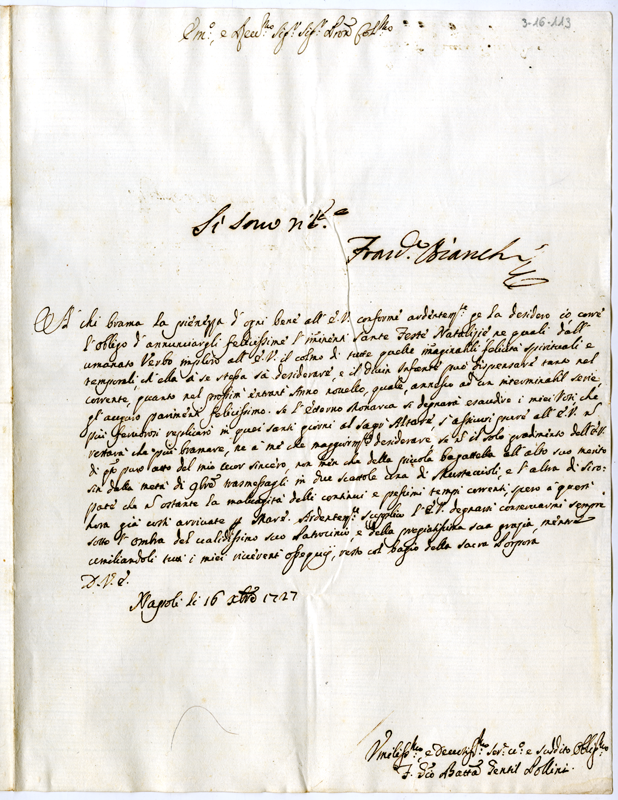 3-16-113
Em̃o, e Reṽmo Sigr. Sigr. Pron̄ Colmo
Si sono ric.e
Frand.o Bianchi
A chi brama la pienezza d'ogni bene all'E.V. conforme ardentemte. per la desidero io corre
l'obligo d'annunciargli felicissime l'iminenti Sante Feste Natalizie ne quali dall'
umanato Verbo imploro all'E.V. il colmo di tutte quelle imaginabili felicità spirituali e
temporali, ch'ella à se stessa sà desiderare, e il divin Infante può dispensare tanto nel
corrente, quanto nel prossimo entrante Anno novello, quale, annesso ad un interminabil serie,
gl'auguro parimenti felicissimo. Se l'eterno Monarca si degnarà esaudire i miei Voti che
più fervorosi replicarò in quei santi giorni al Sagro Altare, s'assicuri pure all'E.V. nō
restarà che più bramare, ne à me che maggiormte. desiderare se nō il solo gradimento dell'E.V.
di qto. puro atto del mio cuor sincero, non men che della piccola bagattella all'alto suo merito
sin dalla metà di 9bre trasmessagli in due scattole una di Mustaccioli, e l'altra di Siro-
pate che nō ostante la malvagità delli continui e pessimi tempi correnti spero à quest'
hora già costì arrivate p. Mare. Ardentemte. supplico l'E.V. degnarsi conservarmi sempre
sotto l'ombra del validissimo suo Patrocinio e della pregiatissima sua grazia mentre
umiliandoli tutti i miei riverenti ossequij, resto col bagio della Sacra Porpora
D.V.E.
Napoli li 16 Xbre 1727
Umilissmo, e Devotissmo Servre. e Suddito Obligmo
F. Gio Batta Gentil Pollini.